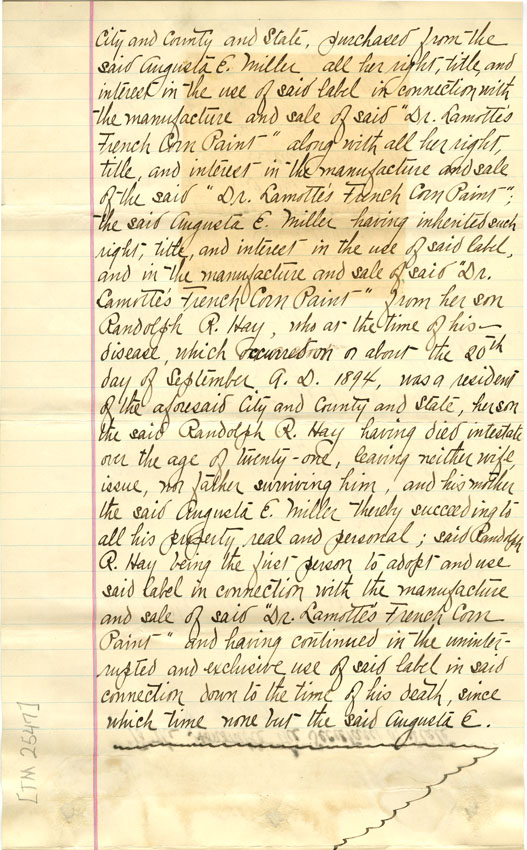 City and County and State, purchased from the
said Augusta E. Miller all her right, title, and
interest in the use of said label in connection with
the manufacture and sale of said "Dr. Lamotte's
French Corn Paint" along with all her right,
title, and interest in the manufacture and sale
of the said "Dr. Lamotte's French Corn Paint";
the said Augusta E. Miller having inherited such
right, title, and interest in the use of said label,
and in the manufacture and sale of said "Dr.
Lamotte's French Corn Paint" from her son
Randolph R. Hay, who at the time of his
disease, which occurred on or about the 20th
day of September A. D. 1894, was a resident
of the aforesaid City and County and State, her son
the said Randolph R. Hay having died intestate
over the age of twenty-one, leaving neither wife,
issue, nor father surviving him, and his mother
the said Augusta E. Miller thereby succeeding to
all his property real and personal; said Randolph
R. Hay being the first person to adopt and use
said label in connection with the manufacture
and sale of said "Dr. Lamotte's French Corn
Paint" and having continued in the uninter-
rupted and exclusive use of said label in said
connection down to the time of his death, since
which time none but the said Augusta E.
[TM 2547]